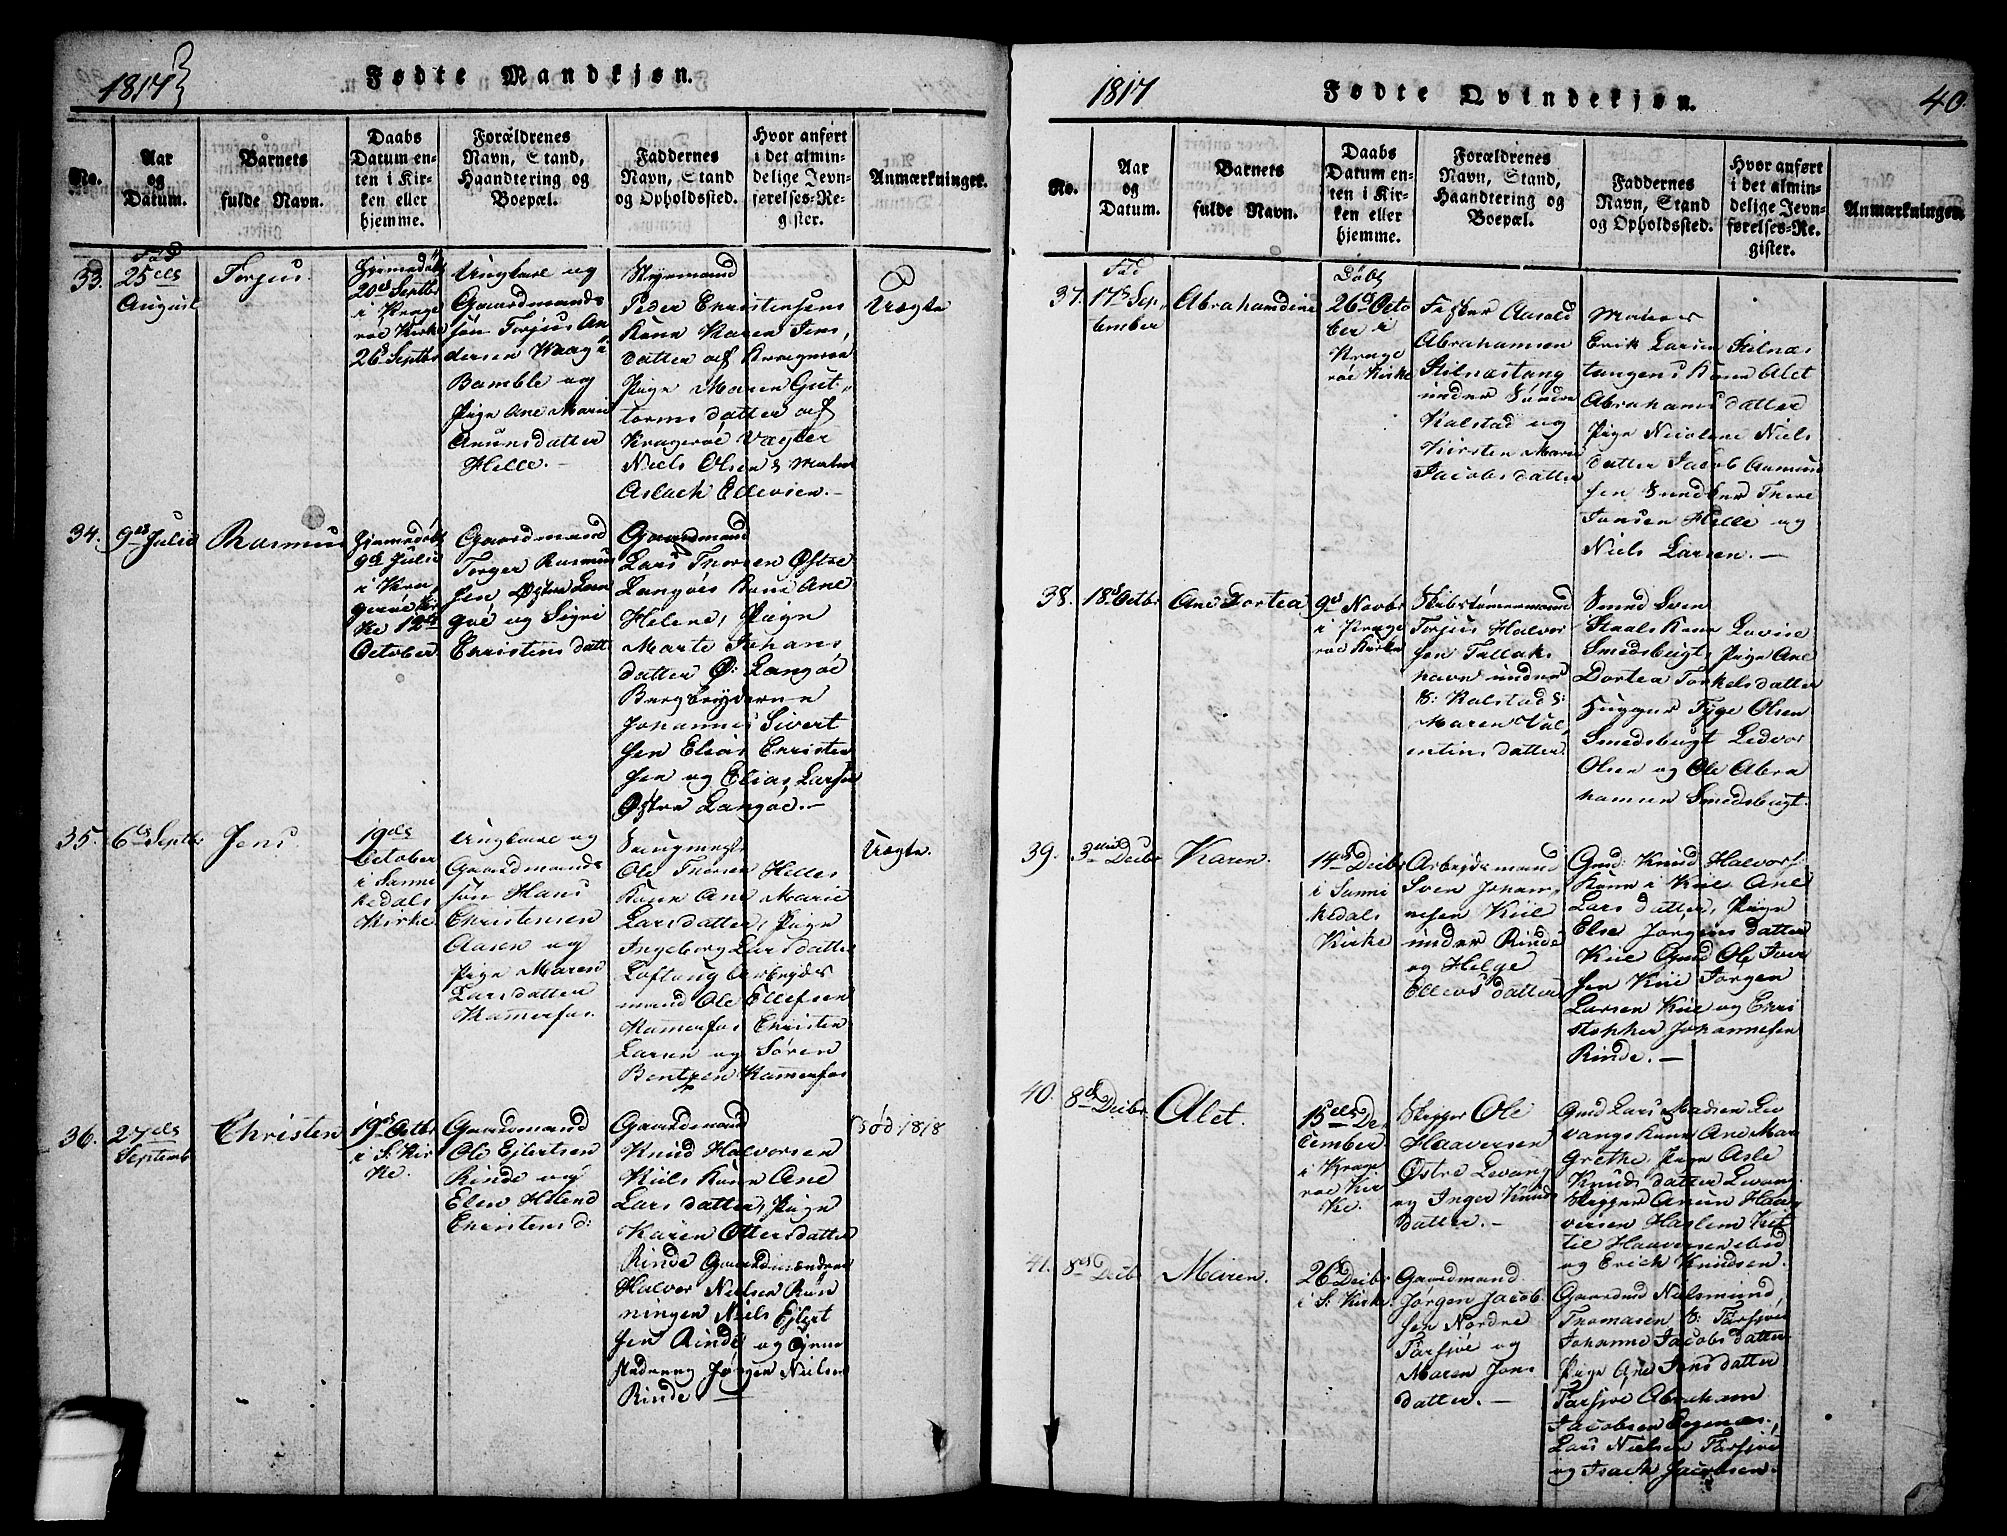 1817
Fødte Mandkjøn.
No.
Aar
og
Datum.
Barnets
fulde Navn.
Daabs
Datum en-
ten i Kir-
ken eller
hjemme.
Forældrenes
Navn, Stand,
Haandtering og
Boepæl.
Faddernes
Navn, Stand
og Opholdssted.
Hvor anført
i det almin-
delige Jevn-
førelses-Re-
gister.
Anmærkninger.
33.
Fød
25de
August
Torjus.
Hjemedøbt
20de Septbr
i Krage
röe Kirke
26de Septbr
Ungkarl og
Gaardmands
sön Torjus An
dersen Waag i
Bamble og
Pige Ane Marie
Anunsdatter
Helle.-
Styrmand
Peder Christensens
Kone Karen Jens
datter af Krageröe,
Pige Maren Gut-
tormsdatter af
Krageröe Vægter
Niels Olsen & Matros
Aslach Ellevsen.-
Uægte
34.
9de Julii
Rasmus
Hjemedöbt
9de Julii
i Kra
geröe Kir
ke 12te
October
Gaardmand
Torger Rasmus
sen Østre Lan
göe og Signi
Christensdatt
Gaardmand
Lars Thorsen Østre
Langöes Kone Ane
Helene, Pige
Marte Johans
datter Ø: Langöe
Bergbryderne
Johannes Sivert
sen Elias Christen
sen og Elias Larsen
Østre Langöe.-
35.
6te Septbr
Jens
19de
October
i Sanni
kedals
Kirke
Ungkarl og
Gaardmands
sön Hans
Christensen
Aasen og
Pige Maren
Larsdatter
Kamerfos.
Saugmest
Ole Thorsen Helles
Kone Ane Marie
Larsdatter, Pige
Ingeborg Larsdatter
Loftoug Arbeyds
mand Ole Ellefsen
Kamerfos Christen
Larsen og Sören
Bentzen Kamerfos
Uægte.
36.
27de
Septemb
Christen
19de Octbr
i S: Kir
ke.
Gaardmand
Ole Ejlertsen
Rinde og
Elen Helene
Christensd:
Gaardmand
Knud Halvorsen
Kiils Kone Ane
Larsdatter, Pige
Karen Ottersdatter
Rinde Gaardmændene
Halvor Nielsen Røn
ningen Niels Ejlert
sen Rinde og Tjene
stedreng Jørgen Nielsen
Rinde
Död 1818
1817
Fødte Qvindekjøn.
40.
No.
Aar
og
Datum.
Barnets
fulde Navn.
Daabs
Datum en-
ten i Kir-
ken eller
hjemme.
Forældrenes
Navn, Stand,
Haandtering og
Boepæl.
Faddernes
Navn, Stand
og Opholdssted.
Hvor anført
i det almin-
delige Jevn-
førelses-Re-
gister.
Anmærkninger.
37.
Fød
17de Sep-
tember
Abrahamdine
Döbt
26de Octo
ber i
Krage
röe Kirke
Fisker Aasold
Abrahamsen
Stilnæstang
under Söndre
Kalstad og
Kirsten Marie
Jacobsdatter
Matros
Erik Larsen Stilnæs
tangens Kone Alet
Abrahamsdatter
Pige Nicolene Niels
datter Jacob Aamund
sen Sundbøe Thore
Jansen Helle og
Niels Larsen.-
38.
18de Octbr
Ane Dortea
9de Novbr
i Krage
röe Kirke
Skibstömmermand
Torjus Halvor
sen Tallaks
havn under
S: Kalstad &
Maren Val
entinsdatter
Smed Sven
Staals Kone Lovise
Smedsbugt Pige Ane
Dortea Torkelsdatter
Hugger Tyge Olsen
Smedsbugt Ledvor
Olsen og Ole Abra
hamsen Smedsbugt.
39.
3die Decbr
Karen.
14de Decbr
i Sanni
kedals
Kirke
Arbeydsmand
Sven Johan
nesen Kiil
under Rinde
og Helge
Ellevsdatter
Gmd: Knud Halvors
Kone i Kiil Ane
Larsdatter, Pige
Else Jörgensdatter
Kiil Gmd Ole Iver
sen Kiil Jörgen
Larsen Kiil og Chri
stopher Johannesen
Rinde.-
40.
8de Decbr
Alet.
15de De
cember
i Krage
röe Kir
ke.
Skipper Ole
Haaversen
Østre Levang
og Inger Knuds
datter.-
Gmd Lars Madsen Le
vangs Kone Ane Mar
grethe, Pige Asle
Knudsdatter Levang
Skipper Anun Haa
versen Haslem Kit
til Haaversen ibid
og Erich Knudsen.
41.
8de Decbr
Maren.
26de Decbr
i S: Kirke
Gaardmand
Jörgen Jacob
sen Nordre
Farsjöe og
Maren Jens
datter.-
Gaardmd Nilsmund
Thomasen S: Farsjöe
Johanne Jacobsdatter
Pige Ane Jensdatter
Farsjöe Abraham
Jacobsen Eegenæs,
Lars Nielsen Farsjöe
og Isach Jacobsen.